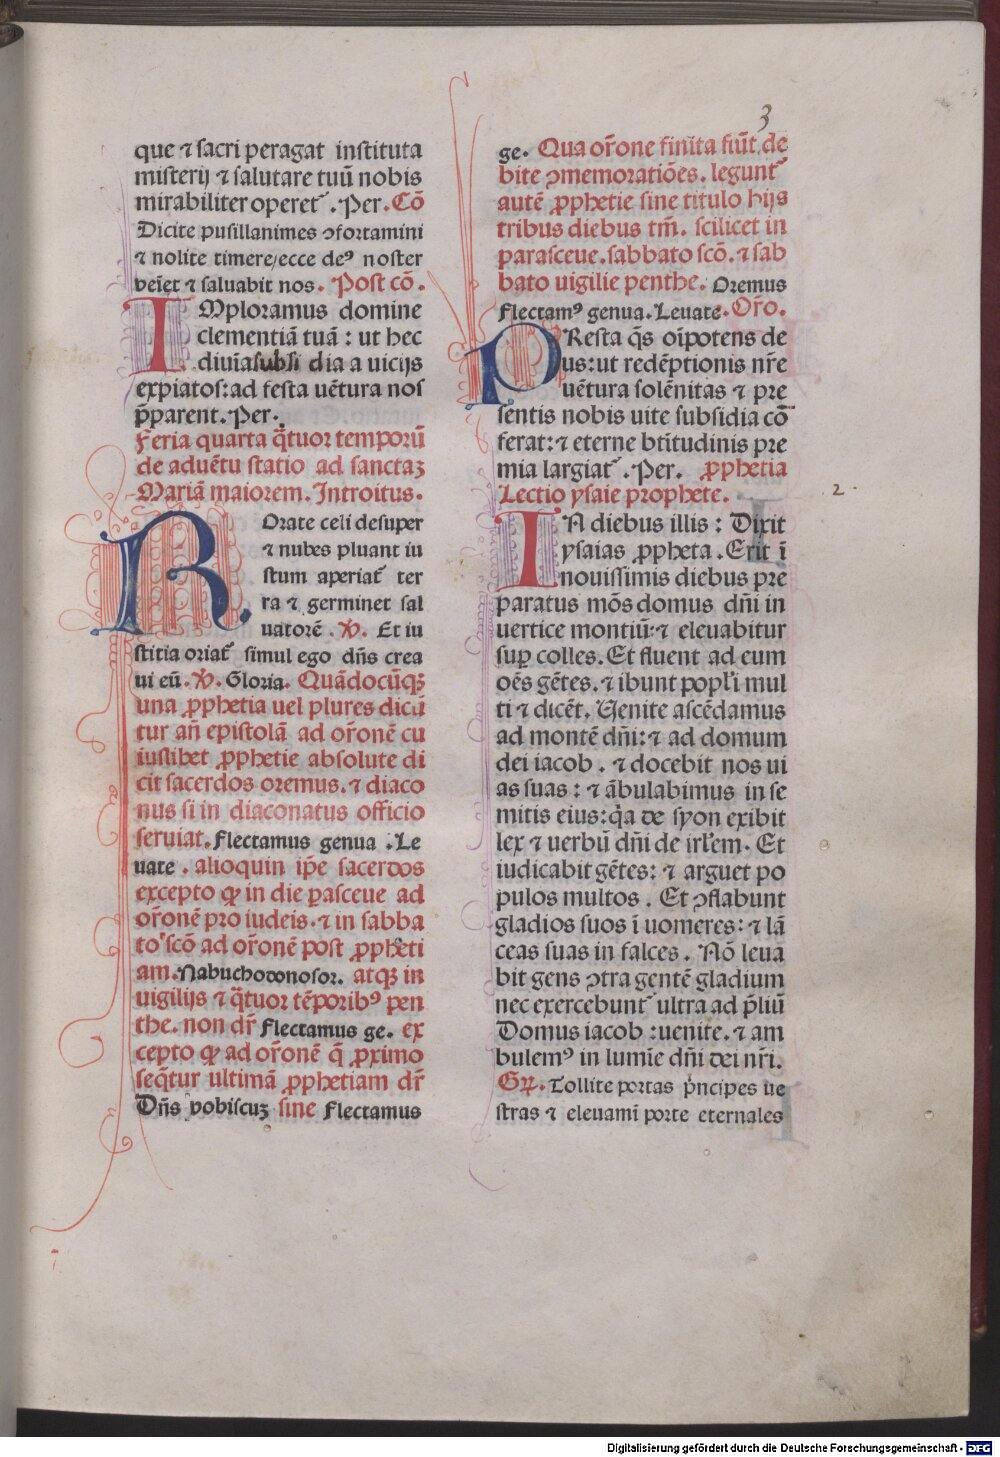 3
que ⁊ sacri peragat instituta
misterij ⁊ salutare tuū nobis
mirabiliter operet᷑. Per. Cō
Dicite pusillanimes ↄfortamini
⁊ nolite timere/ecce deꝰ noster
veīet ⁊ saluabit nos. Post cō.
IMploramus domine
clementiā tuā : ut hec
diuīa subsi dia a uicijs
expiatos: ad festa uētura nos
p̄parent. Per.
Feria quarta q̄tuor temporū
de aduētu statio ad sanctaꝫ
Mariā maiorem. Introitus.
ROrate celi desuper
⁊ nubes pluant iu
stum aperiat᷑ ter
ra ⁊ germinet sal
uatorē. ℣. Et iu
stitia oriat᷑ simul ego dn̄s crea
ui eū. ℣. Gloria. Quādocūqꝫ
una ꝓphetia uel plures dicū
tur an̄ epistolā ad or̄onē cu
iuslibet ꝓphetie absolute di
cit sacerdos oremus. ⁊ diaco
nus si in diaconatus officio
seruiat. Flectamus genua. Le
uate. alioquin ip̄e sacerdos
excepto ꝙ in die pasceue ad
or̄onē pro iudeis. ⁊ in sabba
to scō ad or̄onē post ꝓpheti
am. Nabuchodonosor. atqꝫ in
uigilijs ⁊ q̄tuor tēporibꝰ pen
the. non dr̄ Flectamus ge. ex
cepto ꝙ ad or̄onē q̄ ꝓximo
seq̄tur ultimā ꝓphetiam dr̄
Dn̄s vobiscuꝫ sine Flectamus
ge. Qua or̄one finita fiūt de
bite ↄmemoratiōes. legunt᷑
autē ꝓphetie sine titulo hijs
tribus diebus tm̄. scilicet in
parasceue. sabbato scō. ⁊ sab
bato uigilie penthe. Oremus
Flectamꝰ genua. Leuate. Or̄o.
PResta q̄s oīpotens de
us: ut redēptionis nr̄e
uētura solēnitas ⁊ pre
sentis nobis uite subsidia cō
ferat: ⁊ eterne btītudinis pre
mia largiat᷑. Per. ꝓphetia
Lectio ysaie prophete.
2.
IN diebus illis : Dixit
ysaias ꝓpheta. Erit ī
nouissimis diebus pre
paratus mōs domus dn̄i in
uertice montiū: ⁊ eleuabitur
suꝑ colles. Et fluent ad eum
oēs gētes. ⁊ ibunt popl̄i mul
ti ⁊ dicēt. Uenite ascēdamus
ad montē dn̄i: ⁊ ad domum
dei iacob. ⁊ docebit nos ui
as suas : ⁊ ābulabimus in se
mitis eius: q̄a de syon exibit
lex ⁊ uerbū dn̄i de irl̄em. Et
iudicabit gētes: ⁊ arguet po
pulos multos. Et ↄflabunt
gladios suos ī uomeres: ⁊ lā
ceas suas in falces. Nō leua
bit gens ↄtra gentē gladium
nec exercebunt᷑ ultra ad p̄liū
Domus iacob : uenite. ⁊ am
bulemꝰ in lumīe dn̄i dei nr̄i.
Gꝝ. Tollite portas p̄ncipes ue
stras ⁊ eleuamī porte eternales
Digitalisierung gefördert durch die Deutsche Forschungsgemeinschaft - DFG